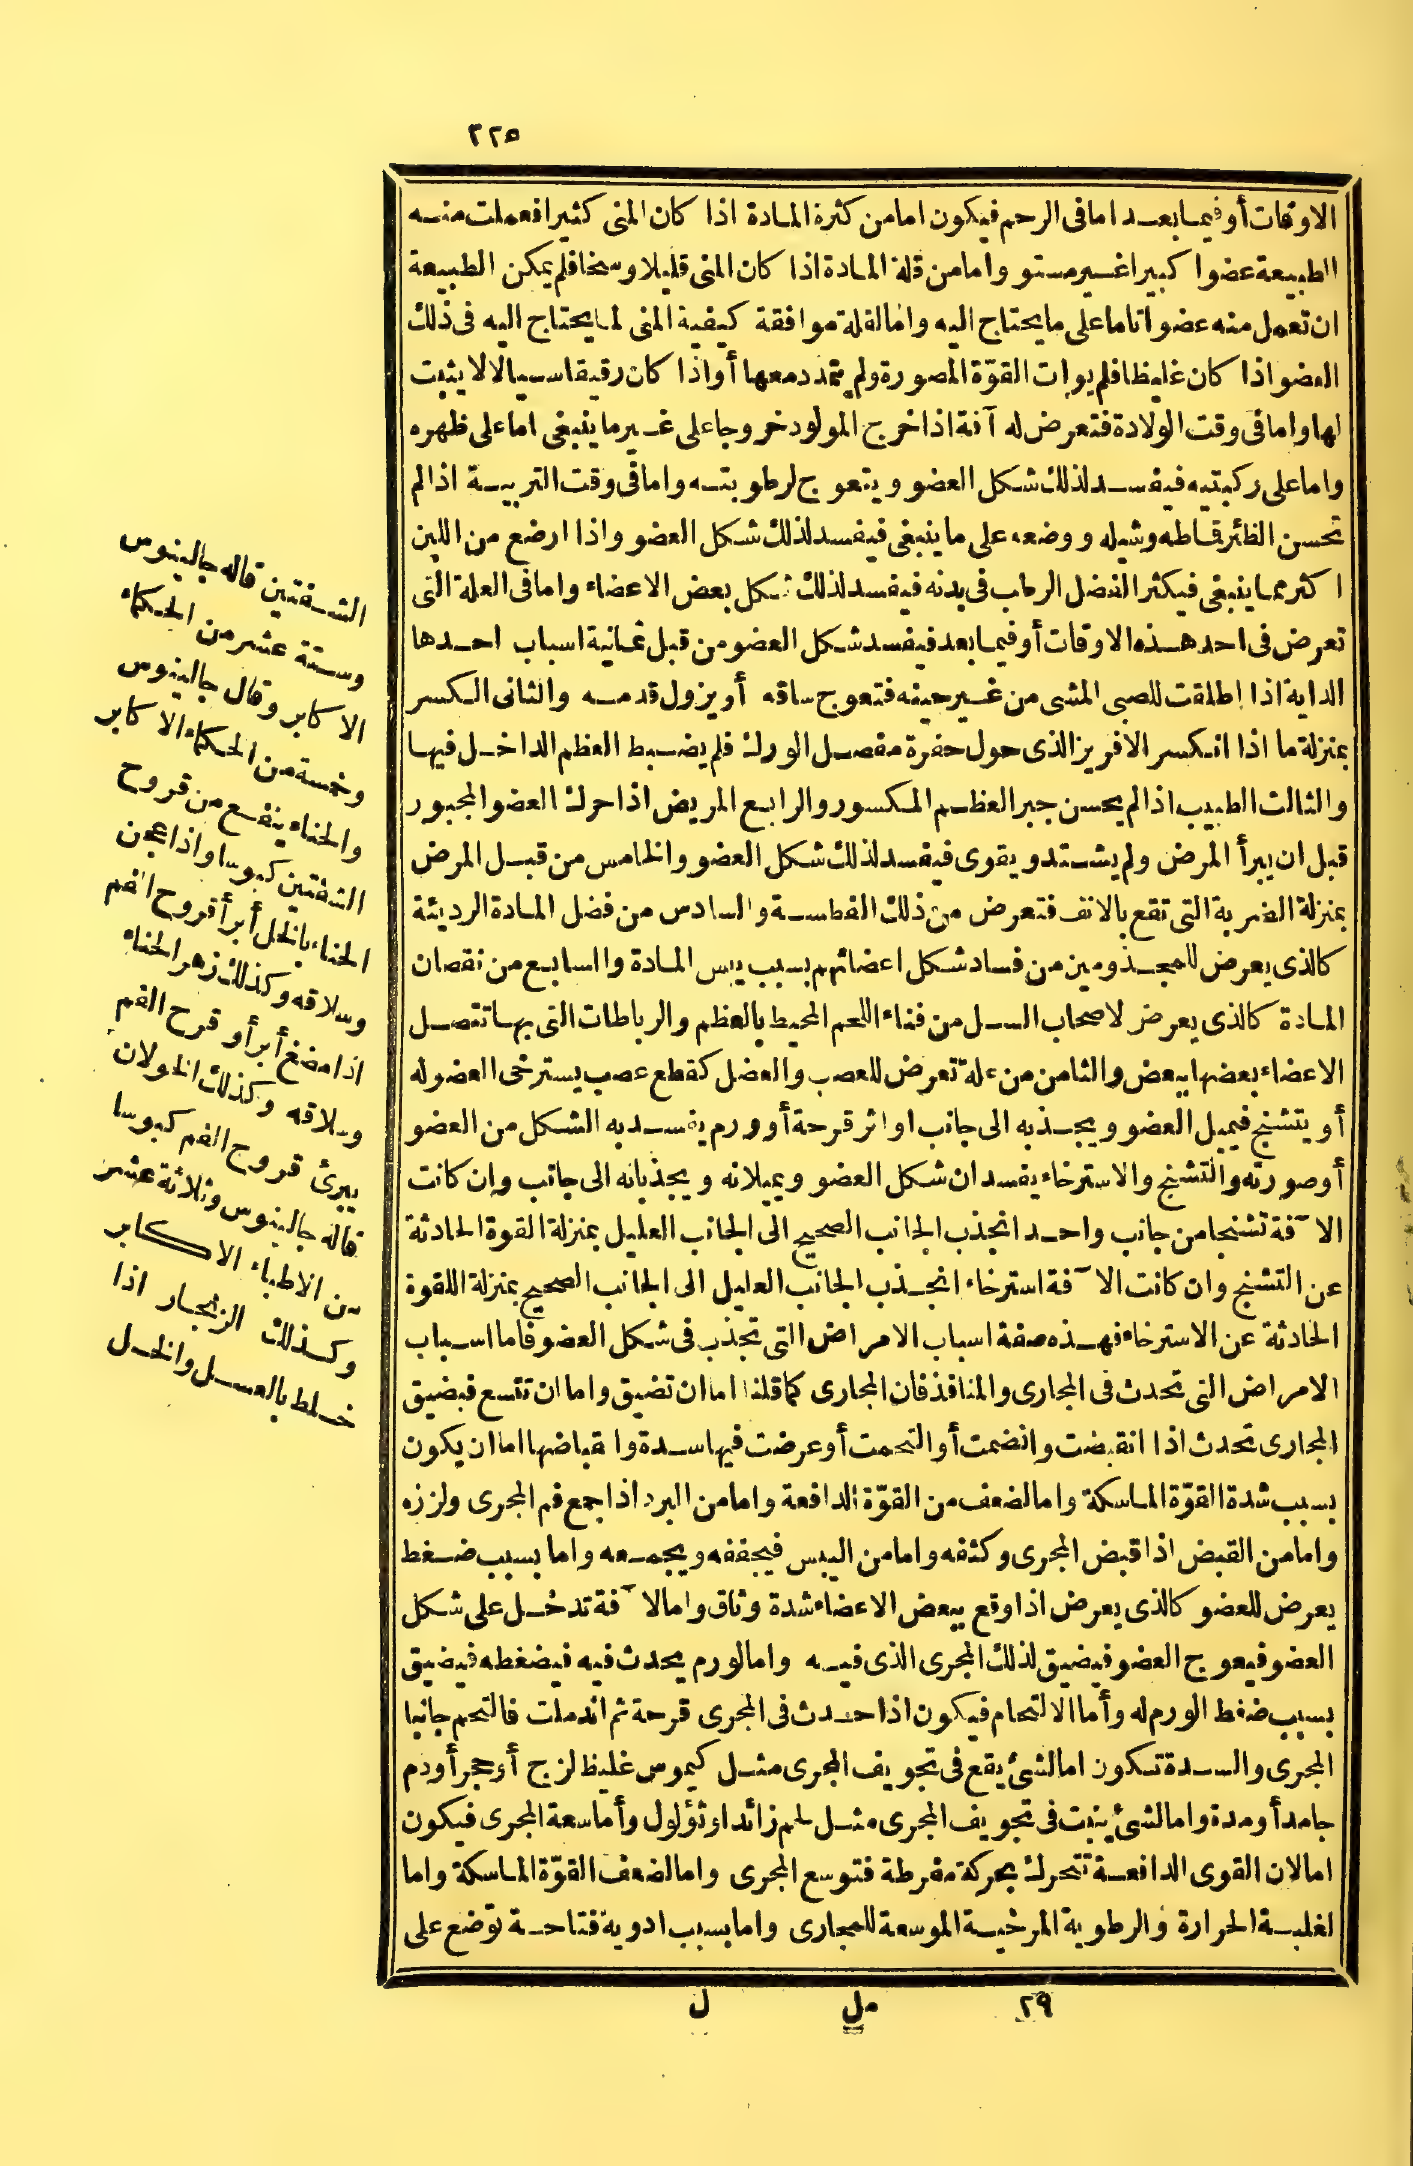 ٢٢٥
الاوقات أو فيما بعد اما فى الرحم فيكون اما من كثرة المادة اذا كان المنى كثيرا فعملت منه
الطبيعة عضوا كبيرا غير مستو واما من قلة المادة اذا كان المنى قليلا وسخا فلم يمكن الطبيعة
ان تعمل منه عضوا تاما على ما يحتاج اليه واما لقلة موافقة كيفية المنى لما يحتاج اليه فى ذلك
العضو اذا كان غليظا فلم يوات القوّة المصورة ولم يتمدد معها أو اذا كان رقيقا سيالا لا يثبت
لها واما فى وقت الولادة فتعرض له آفة اذا خرج المولود خروجا على غير ما ينبغى اما على ظهره
واما على ركبتيه فيفسد لذلك شكل العضو ويتعوج لرطوبته واما فى وقت التربية اذا لم
تحسن الظئر قماطه وشيله ووضعه على ما ينبغى فيفسد لذلك شكل العضو واذا ارضع من اللبن
اكثر مما ينبغى فيكثر الفضل الرطب فى بدنه فيفسد لذلك شكل بعض الاعضاء واما فى العلة التى
تعرض فى احد هذه الاوقات أو فيما بعد فيفسد شكل العضو من قبل ثمانية اسباب احدها
الداية اذا اطلقت للصبى المشى من غير حينه فتعوج ساقه أو يزول قدمه والثانى الكسر
بمنزلة ما اذا انكسر الافريز الذى حول حفرة مفصل الورك فلم يضبط العظم الداخل فيها
والثالث الطبيب اذا لم يحسن جبر العظم المكسور والرابع المريض اذا حرك العضو المجبور
قبل ان يبرأ المرض ولم يشتد ويقوى فيفسد لذلك شكل العضو والخامس من قبل المرض
بمنزلة الضربة التى تقع بالانف فتعرض من ذلك الفطسة والسادس من فضل المادة الرديئة
كالذى يعرض للمجذومين من فساد شكل اعضائهم بسبب يبس المادة والسابع من نقصان
المادة كالذى يعرض لاصحاب السل من فناء اللحم المحيط بالعظم والرباطات التى بها تتصل
الاعضاء بعضها ببعض والثامن من علة تعرض للعصب والعضل كقطع عصب يسترخى العضو له
أو يتشنج فيميل العضو ويجذبه الى جانب او اثر قرحة أو ورم يفسد به الشكل من العضو
أو صورته والتشنج والاسترخاء يفسدان شكل العضو ويميلانه ويجذبانه الى جانب وان كانت
الآفة تشنجا من جانب واحد انجذب الجانب الصحيح الى الجانب العليل بمنزلة القوة الحادثة
عن التشنج وان كانت الآفة استرخاء انجذب الجانب العليل الى الجانب الصحيح بمنزلة اللقوة
الحادثة عن الاسترخاء فهذه صفة اسباب الامراض التى تجذب فى شكل العضو فاما اسباب
الامراض التى تحدث فى المجارى والمنافذ فان المجارى كما قلنا اما ان تضيق واما ان تتسع فيضيق
المجارى تحدث اذا انقبضت وانضمت أو التحمت أو عرضت فيها سدة وانقباضها اما ان يكون
بسبب شدة القوّة الماسكة واما لضعف من القوّة الدافعة واما من البرد اذا جمع فم المجرى ولززه
واما من القبض اذا قبض المجرى وكثفه واما من اليبس فيجففه ويجمعه واما بسبب ضغط
يعرض للعضو كالذى يعرض اذا وقع ببعض الاعضاء شدة وثاق واما لآفة تدخل على شكل
العضو فيعوج العضو فيضيق لذلك المجرى الذى فيه واما لورم يحدث فيه فيضغطه فيضيق
بسبب ضغط الورم له وأما الالتحام فيكون اذا حدث فى المجرى قرحة ثم اندملت فالتحم جانبا
المجرى والسدة تكون اما لشئ يقع فى تجويف المجرى مثل كيموس غليظ لزج أو حجر أو دم
جامد أو مدة واما لشئ ينبت فى تجويف المجرى مثل لحم زائد او ثؤلول وأما سعة المجرى فيكون
اما لان القوى الدافعة تتحرك بحركة مفرطة فتوسع المجرى واما لضعف القوّة الماسكة واما
لغلبة الحرارة والرطوبة المرخية الموسعة للمجارى واما بسبب ادوية فتاحة توضع على
٢٩ مل ل
الشفتين قاله جالينوس
وستة عشر من الحكماء
الاكابر وقال جالينوس
وخمسة من الحكماء الاكابر
والحناء ينفع من قروح
الشفتين كبوسا واذا عجن
الحناء بالخل أبرأ قروح الفم
وسلاقه وكذلك زهر الحناء
اذا مضغ أبرأ وقرح الفم
وسلاقه وكذلك الخولان
يبرئ قروح الفم كبوسا
قاله جالينوس وثلاثة عشر
من الاطباء الاكابر
وكذلك الزنجار اذا
خلط بالعسل والخل